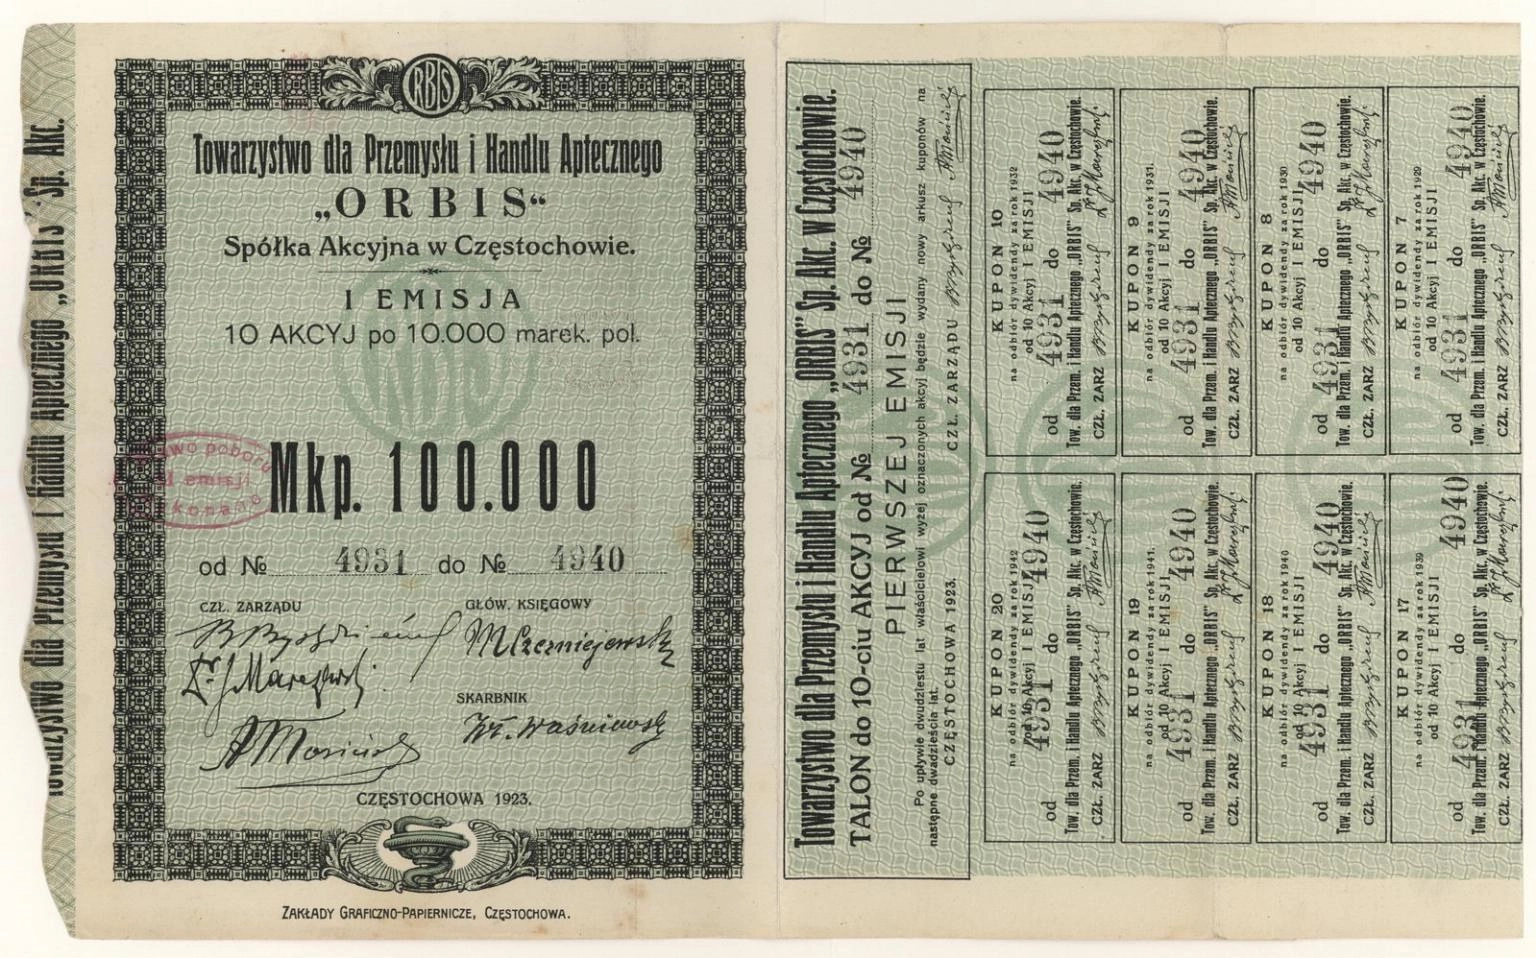 Towarzystwo dla Przemysłu i Handlu Aptecznego „ORBIS” Sp. Akc.
ORBIS
Towarzystwo dla Przemysłu i Handlu Aptecznego
„ORBIS“
Spółka Akcyjna w Częstochowie.
I EMISJA
10 AKCYJ po 10.000 marek. pol.
Mkp. 100.000
poboru
emisji
od № 4931 do № 4940
CZŁ. ZARZĄDU
GŁÓW. KSIĘGOWY
M Czerniejewski
SKARBNIK
CZĘSTOCHOWA 1923.
ZAKŁADY GRAFICZNO-PAPIERNICZE, CZĘSTOCHOWA.
Towarzystwo dla Przemysłu i Handlu Aptecznego „ORBIS” Sp. Akc. w Częstochowie.
TALON do 10-ciu AKCYJ od № 4931 do № 4940
PIERWSZEJ EMISJI
Po upływie dwudziestu lat właścicielowi wyżej oznaczonych akcyj będzie wydany nowy arkusz kuponów na
następne dwadzieścia lat.
CZĘSTOCHOWA 1923.
CZŁ. ZARZĄDU
KUPON 10
na odbiór dywidendy za rok 1932
od 10 Akcyj I EMISJI
od 4931 do 4940
Tow. dla Przem. i Handlu Aptecznego „ORBIS” Sp. Akc. w Częstochowie.
CZŁ. ZARZ
KUPON 9
na odbiór dywidendy za rok 1931.
od 10 Akcyj I EMISJI
od 4931 do 4940
Tow. dla Przem. i Handlu Aptecznego „ORBIS” Sp. Akc. w Częstochowie.
CZŁ. ZARZ
KUPON 8
na odbiór dywidendy za rok 1930
od 10 Akcyj I EMISJI
od 4931 do 4940
Tow. dla Przem. i Handlu Aptecznego „ORBIS” Sp. Akc. w Częstochowie.
CZŁ. ZARZ
KUPON 7
na odbiór dywidendy za rok 1929
od 10 Akcyj I EMISJI
od 4931 do 4940
Tow. dla Przem. i Handlu Aptecznego „ORBIS” Sp. Akc. w Częstochowie.
CZŁ. ZARZ
KUPON 20
na odbiór dywidendy za rok 1942
od 10 Akcyj I EMISJI
od 4931 do 4940
Tow. dla Przem. i Handlu Aptecznego „ORBIS” Sp. Akc. w Częstochowie.
CZŁ. ZARZ
KUPON 19
na odbiór dywidendy za rok 1941.
od 10 Akcyj I EMISJI
od 4931 do 4940
Tow. dla Przem. i Handlu Aptecznego „ORBIS” Sp. Akc. w Częstochowie.
CZŁ. ZARZ
KUPON 18
na odbiór dywidendy za rok 1940
od 10 Akcyj I EMISJI
od 4931 do 4940
Tow. dla Przem. i Handlu Aptecznego „ORBIS” Sp. Akc. w Częstochowie.
CZŁ. ZARZ
KUPON 17
na odbiór dywidendy za rok 1939
od 10 Akcyj I EMISJI
od 4931 do 4940
Tow. dla Przem. i Handlu Aptecznego „ORBIS” Sp. Akc. w Częstochowie.
CZŁ. ZARZ